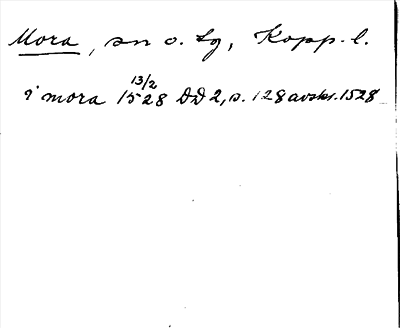 Mora, sn o. tg, Kopp. l.
13/2
i mora 1528 DD 2, s. 128 avskr. 1528